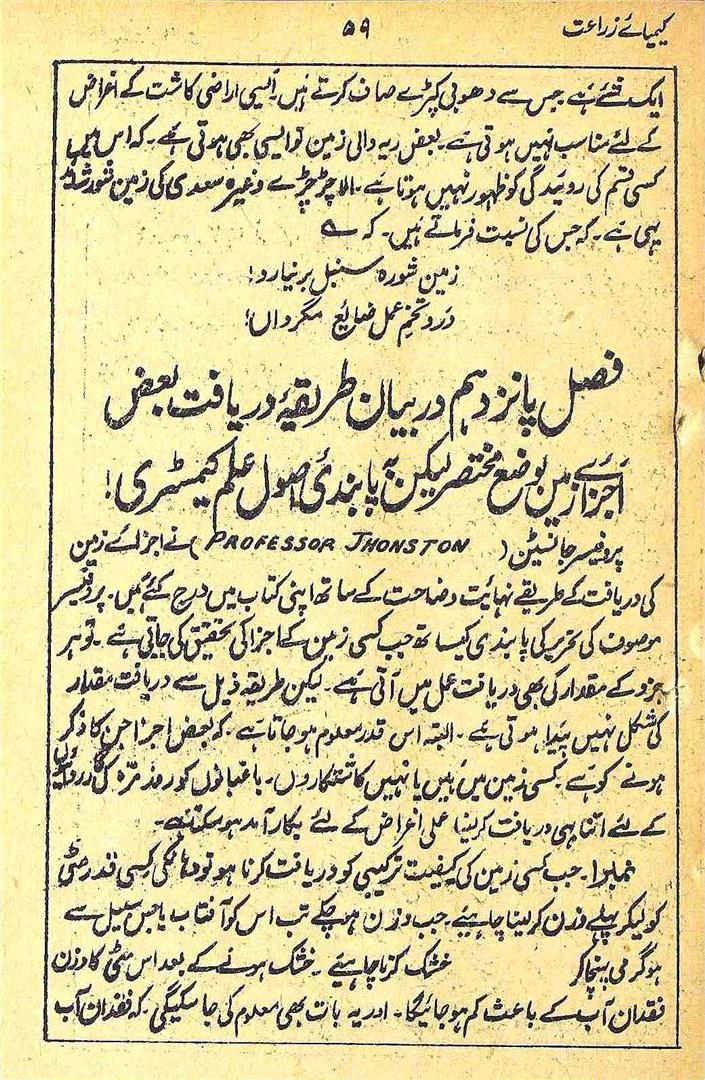 کیمیائے زراعت
۵۹
ایک شئے ہے۔ جس سے دھوبی کپڑے صاف کرتے ہیں۔ ایسی اراضی کاشت کے اغراض
کے لئے مناسب نہیں ہوتی ہے۔ بعض ریہ والی زمین تو ایسی بھی ہوتی ہے۔ کہ اس میں
کسی قسم کی روئیدگی کو ظہور نہیں ہوتا ہے۔ الا چڑچڑے وغیرہ سعدی کی زمین شور شاید
یہی ہے۔ کہ جس کی نسبت فرماتے ہیں۔ کہ ؎
زمین شورہ سنبل بر نیارد!
درو تخم عمل ضایع مگرداں!
فصل پانزدہم در بیان طریقۂ دریافت بعض
اجزائے زمین بوضع مختصر لیکن بہ پابندیٔ اصول علم کیمسٹری!
پروفیسر جانسٹین (PROFESSOR JHONSTON) نے اجزائے زمین
کی دریافت کے طریقے نہائیت وضاحت کے ساتھ اپنی کتاب میں درج کئے ہیں۔ پروفیسر
موصوف کی تحریر کی پابندی کیساتھ جب کسی زمین کے اجزا کی تحقیق کی جاتی ہے۔ تو ہر
جزو کے مقدار کی بھی دریافت عمل میں آتی ہے۔ لیکن طریقہ ذیل سے دریافت مقدار
کی شکل نہیں پیدا ہوتی ہے۔ البتہ اس قدر معلوم ہو جاتا ہے۔ کہ بعض اجزا جن کا ذکر
ہونے کو ہے۔ کسی زمین میں ہیں یا نہیں کاشتکاروں۔ باغبانوں کو روز مرّہ کی کارروائیوں
کے لئے اتنا ہی دریافت کرلینا علی اغراض کے لئے بکار آمد ہو سکتا ہے۔
نمبرا۔ جب کسی زمین کی کیفیت ترکیبی کو دریافت کرنا ہو تو وہانکی کسی قدر مٹی
کو لیکر پہلے وزن کرلینا چاہیئے۔ جب وزن ہو چکے تب اس کو آفتاب یا جس سبیل سے
ہو گرمی پہنچا کر خشک کرنا چاہیئے۔ خشک ہونے کے بعد اس مٹی کا وزن
فقدان آب کے باعث کم ہو جائیگا۔ اور یہ بات بھی معلوم کی جا سکیگی۔ کہ فقدان آب